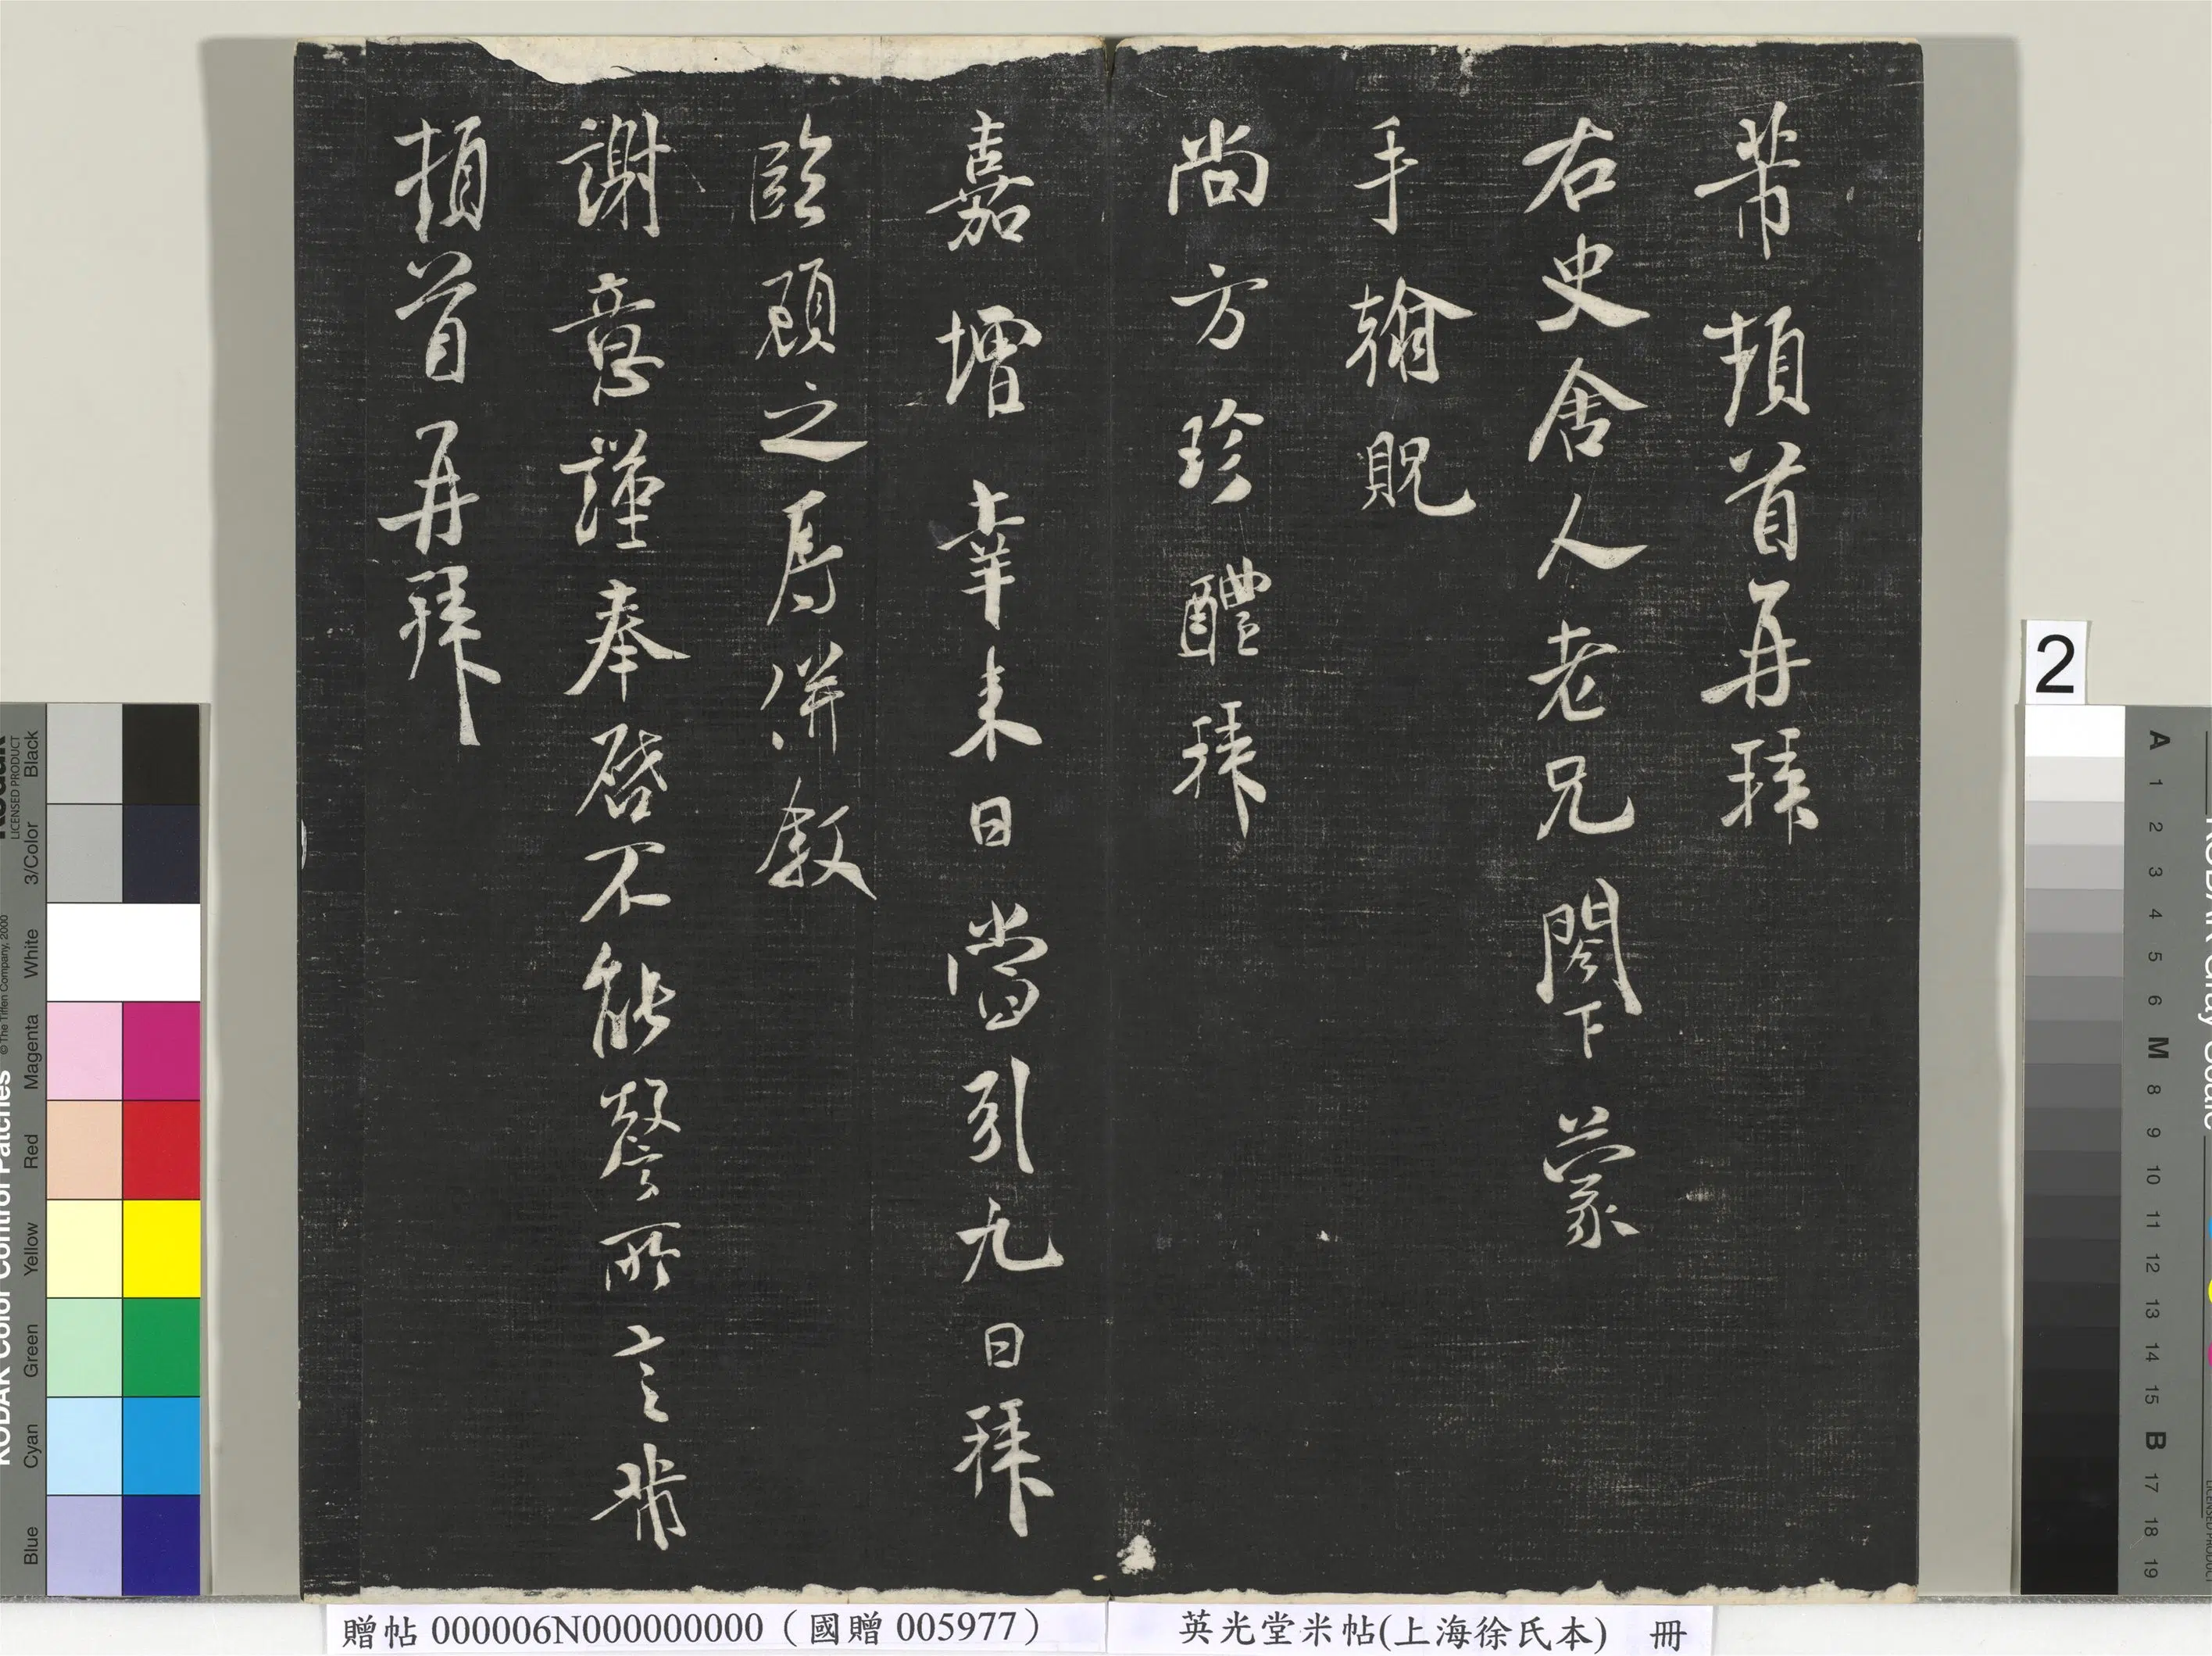 芾頓首再拜
右史舍人老兄閣下蒙
手翰貺
尚方珍醴拜
嘉增幸来日當引九日拜
臨顧之辱併叙
謝意謹奉啓不能罄所言芾
頓首再拜
贈帖 000006N000000000（國贈 005977）
英光堂米帖(上海徐氏本) 冊
2
KODAK Color Control Patches
© The Tiffen Company, 2000
Kodak
LICENSED PRODUCT
Blue Cyan Green Yellow Red Magenta White 3/Color Black
A 1 2 3 4 5 6 M 8 9 10 11 12 13 14 15 B 17 18 19
KODAK Gray Scale